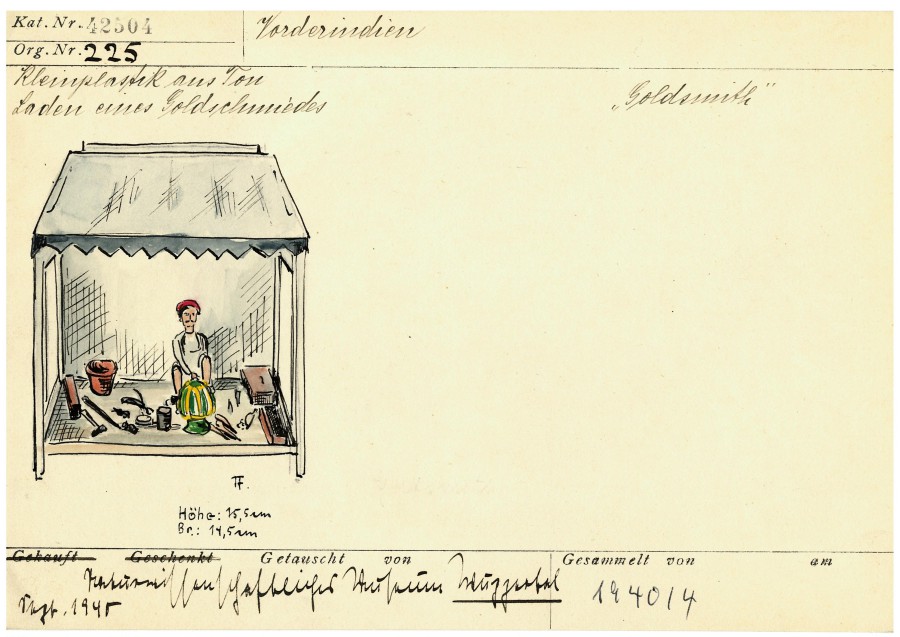 Kat. Nr. 42504
Vorderindien
Org. Nr. 225
Kleinplastik aus Ton
Laden eines Goldschmiedes
„Goldsmith"
TF.
Höhe: 15,5 cm
Br.: 14,5 cm
Gekauft Geschenkt Getauscht von Gesammelt von am
Naturwissenschaftliches Museum Wuppertal
Sept. 1945
194014